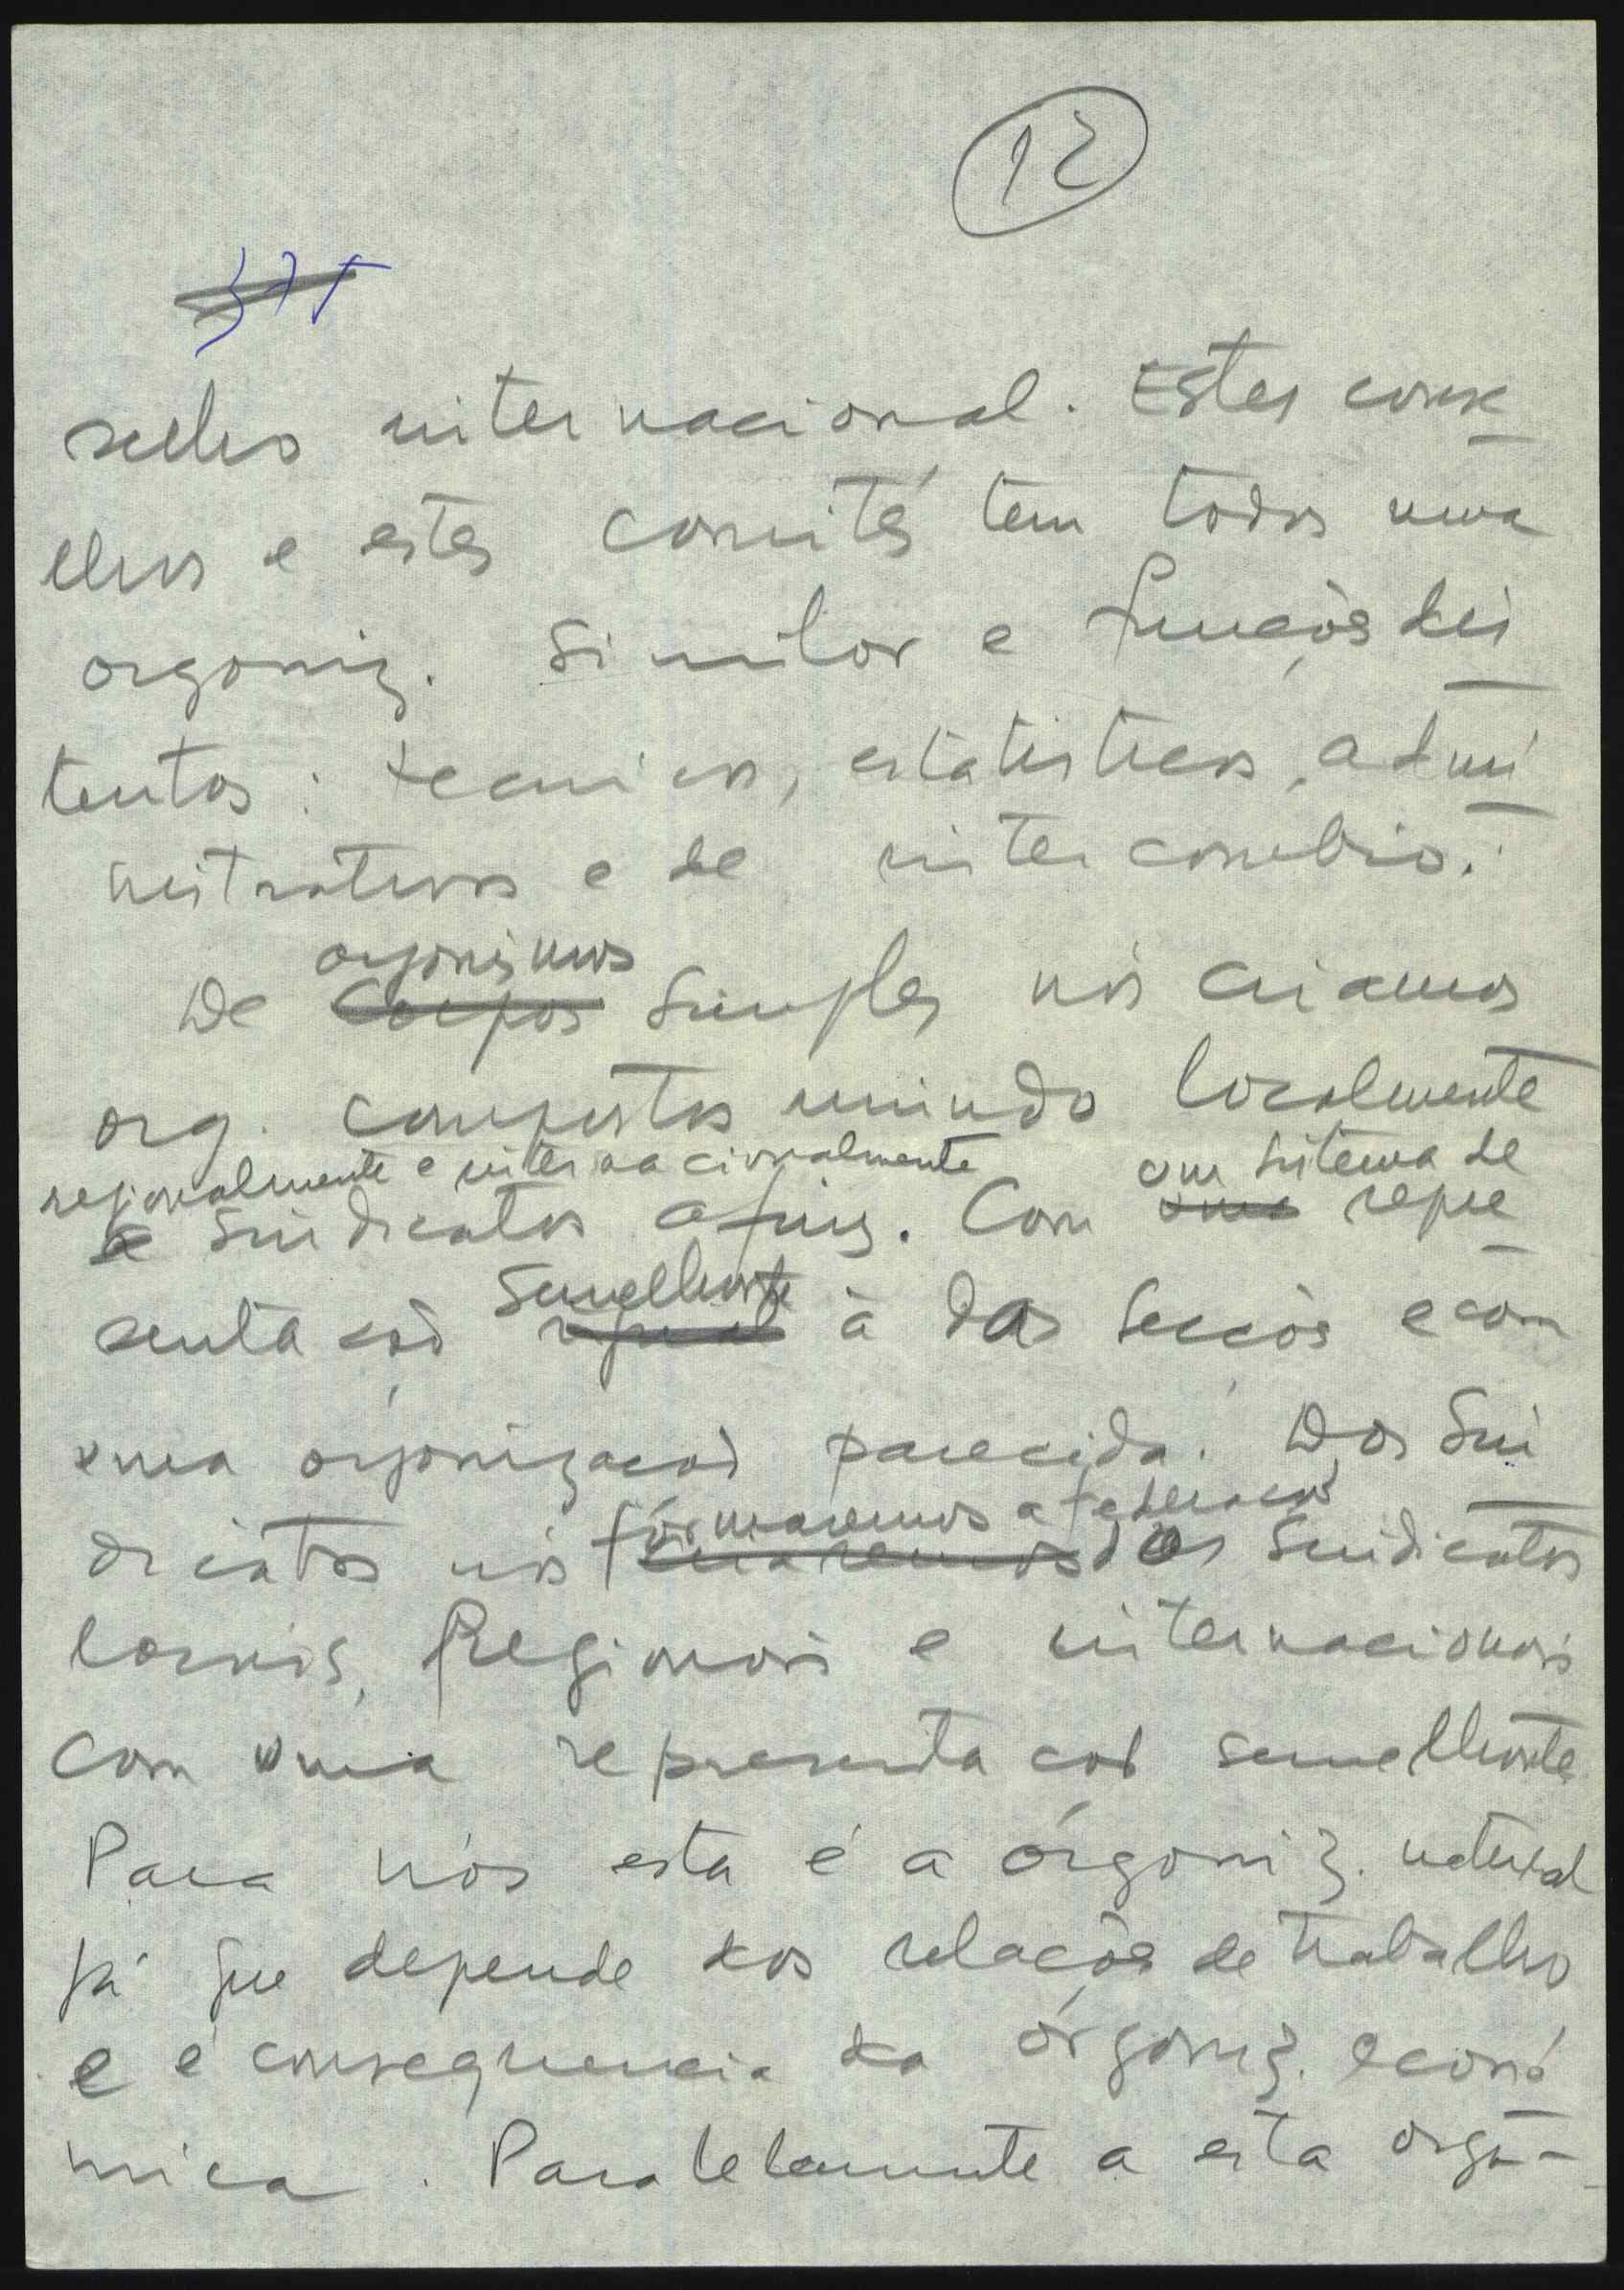 12
375
selho internacional. Estes conse-
lhos e estes comités tem todos uma
organiz. similar e funçõs dis-
tintas: tecnicos, estatisticos, admi-
nistrativos e de intercambio.
organismos
De corpos simples nós criamos
org. compostos unindo localmente
regionalmente e internacionalmente um sistema de
e sindicatos afins. Com uma repre-
semelhante
sentaçaõ igual à das secçõs e com
uma organizacaõ parecida. Dos Sin-
formaremos a federacaõ
dicatos nós criaremos dos Sindicatos
locais, Regionais e internacionais
com uma representaçaõ semelhante
Para nós esta é a órganiz. natural
já que depende das relaçõs de trabalho
e é consequencia da órganiz. econó-
mica. Paralelamente a esta orga-